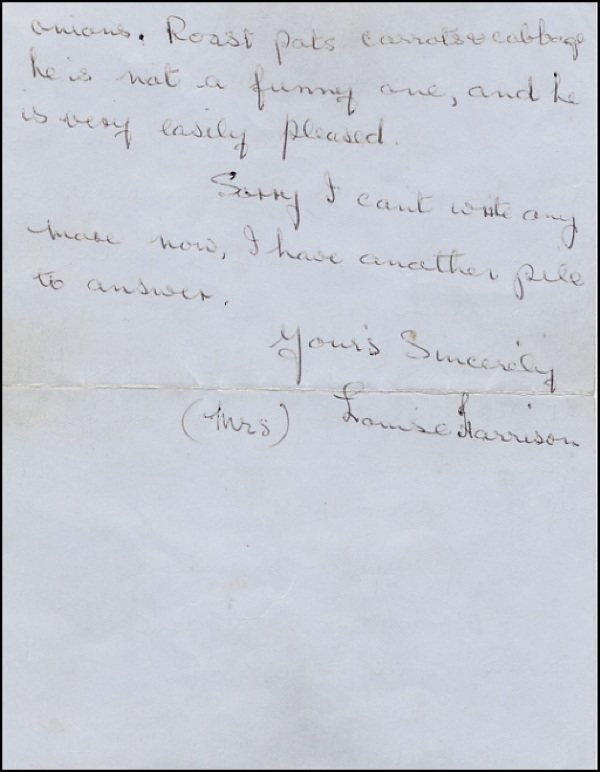 onions. Roast pots carrots & cabbage
he is not a funny one, and he
is very easily pleased.
Sorry I cant write any
more now, I have another pile
to answer.
Your's Sincerely
(Mrs) Louise Harrison